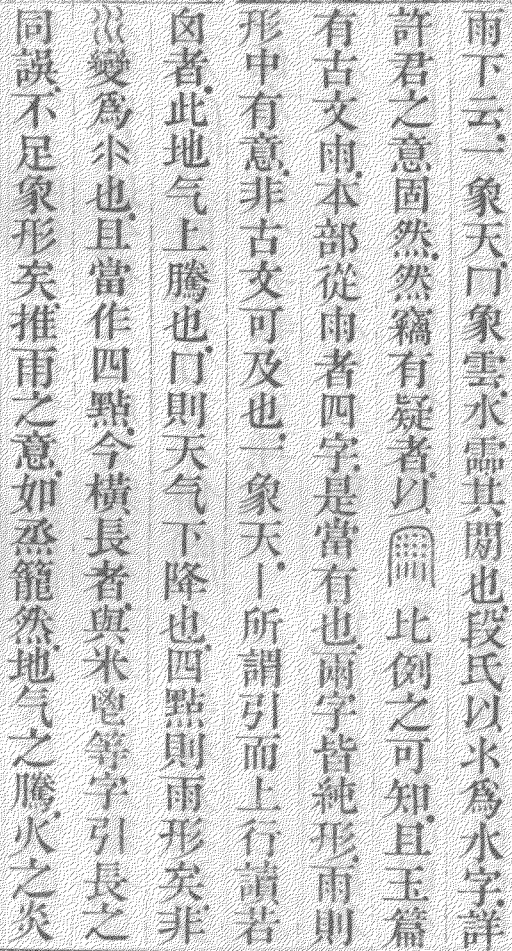 雨下云一象天冂象雲水霝其閒也段氏以氺爲水字詳
許君之意固然然竊有疑者以比例之可知且玉篇
有古文雨本部從雨者四字是當有也兩字皆純形雨則
形中有意非古文可及也一象天丨所謂引而上行讀若
囟者此地气上騰也冂則天气下降也四點則雨形矣非
變爲氺也且當作四點今橫長者與米鬯等字引長之
同誤不足象形矣推雨之意如烝籠然地气之騰火之炎